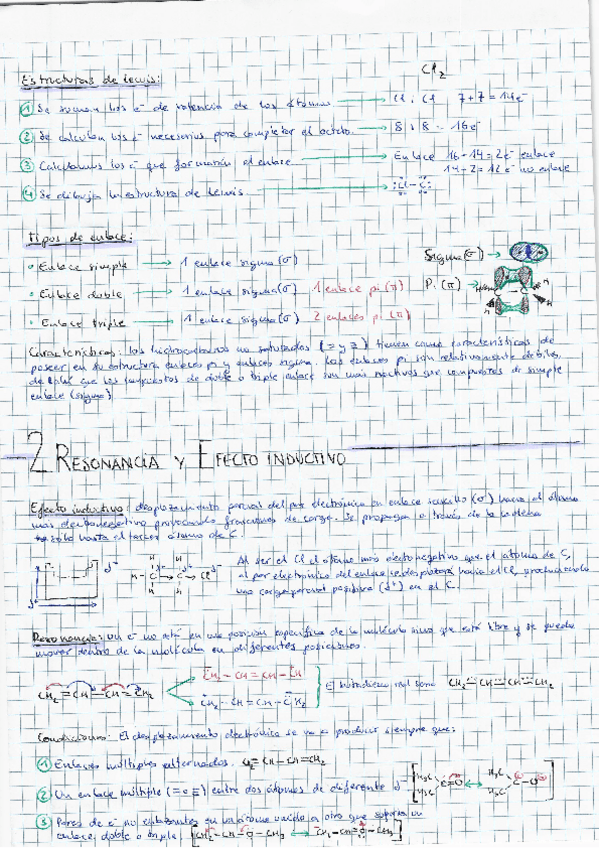 Estructuras de Lewis:
Cl₂
① Se suman los e⁻ de valencia de los átomos. → Cl : Cl 7+7 = 14e⁻
② Se calculan los e⁻ necesarios para completar el octeto. → 8 : 8 = 16e⁻
③ Calculamos los e⁻ que formarán el enlace → Enlace 16-14=2e⁻ enlace
14-2=12e⁻ no enlace
④ Se dibuja la estructura de Lewis
Tipos de enlace:
Enlace simple → 1 enlace sigma (σ)
Sigma (σ) →
Enlace doble → 1 enlace sigma (σ) 1 enlace pi (π)
Pi (π) →
Enlace triple → 1 enlace sigma (σ) 2 enlaces pi (π)
Características: los hidrocarburos no saturados (= y ≡) tienen como características de
poseer en su estructura enlaces pi y enlaces sigma. Los enlaces pi son relativamente débiles,
que los compuestos de doble o triple enlace son más reactivos que compuestos de simple
enlace (sigma)
2 RESONANCIA Y EFECTO INDUCTIVO
Efecto inductivo: desplazamiento parcial del par electrónico en enlace sencillo (σ) hacia el átomo
más electronegativo provocando fracciones de carga. Se propaga a través de la cadena
solo hasta el tercer átomo de C.
Al ser el Cl el átomo más electronegativo que el átomo de C,
el par electrónico del enlace se desplazará hacia el Cl, produciendo
una carga parcial positiva (δ⁺) en el C.
Resonancia: un e⁻ no está en una posición específica de la molécula sino que está libre y se puede
mover dentro de la molécula en diferentes posiciones.
CH₂=CH-CH=CH₂
El butadieno real tiene
Condiciones: El desplazamiento electrónico se va a producir siempre que:
① Enlaces múltiples alternados. CH₂=CH-CH=CH₂
② Un enlace múltiple (= o ≡) entre dos átomos de diferente
③ Pares de e⁻ no enlazantes en un átomo unido a otro que soporta un
enlace doble o triple